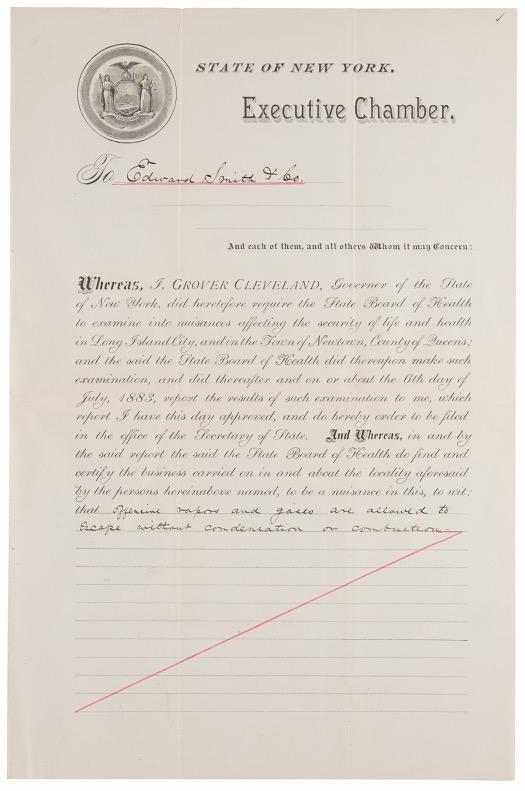 STATE OF NEW YORK.
Executive Chamber.
To Edward Smith & Co.
And each of them, and all others Whom it may Concern:
Whereas, I, GROVER CLEVELAND, Governor of the State
of New York, did heretofore require the State Board of Health
to examine into nuisances affecting the security of life and health
in Long Island City, and in the Town of Newtown, County of Queens;
and the said the State Board of Health did thereupon make such
examination, and did thereafter and on or about the 6th day of
July, 1883, report the results of such examination to me, which
report I have this day approved, and do hereby order to be filed
in the office of the Secretary of State. And Whereas, in and by
the said report the said the State Board of Health do find and
certify the business carried on in and about the locality aforesaid
by the persons hereinabove named, to be a nuisance in this, to wit:
that offensive vapors and gases are allowed to
escape without condensation or combustion.